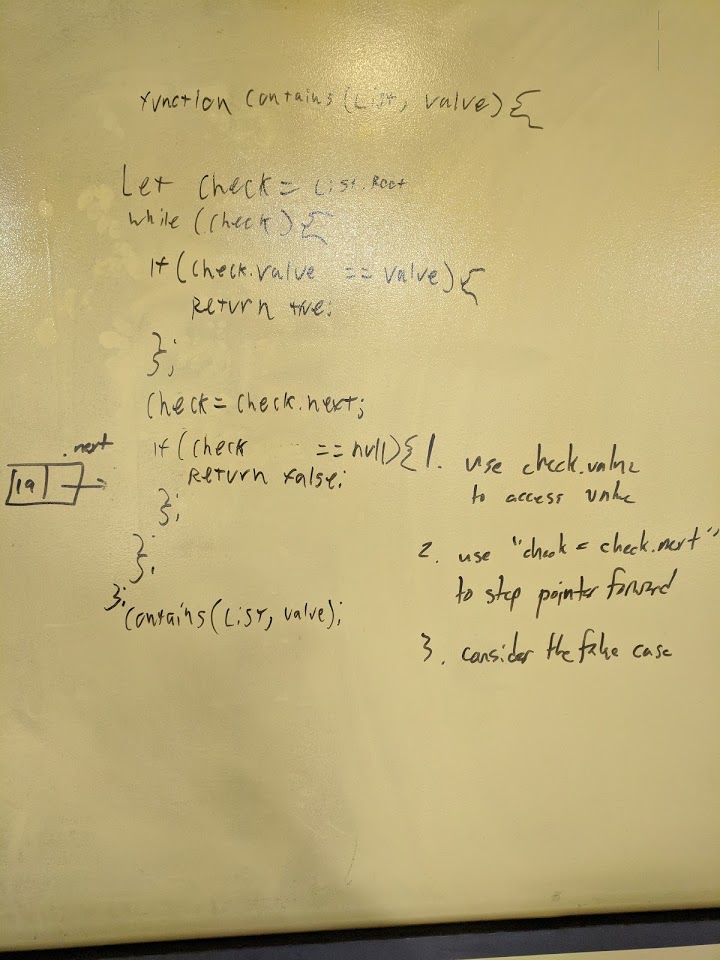 function contains(List, value){
Let check = List.Root
while (check){
If(check.value == value){
Return true;
};
Check = Check.next;
if(check == null){
Return false;
};
};
};
contains(List, value);
.next
19
1. use check.value
to access value
2. use "check = check.next"
to step pointer forward
3. consider the false case